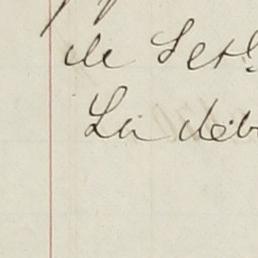 de Set
La déb